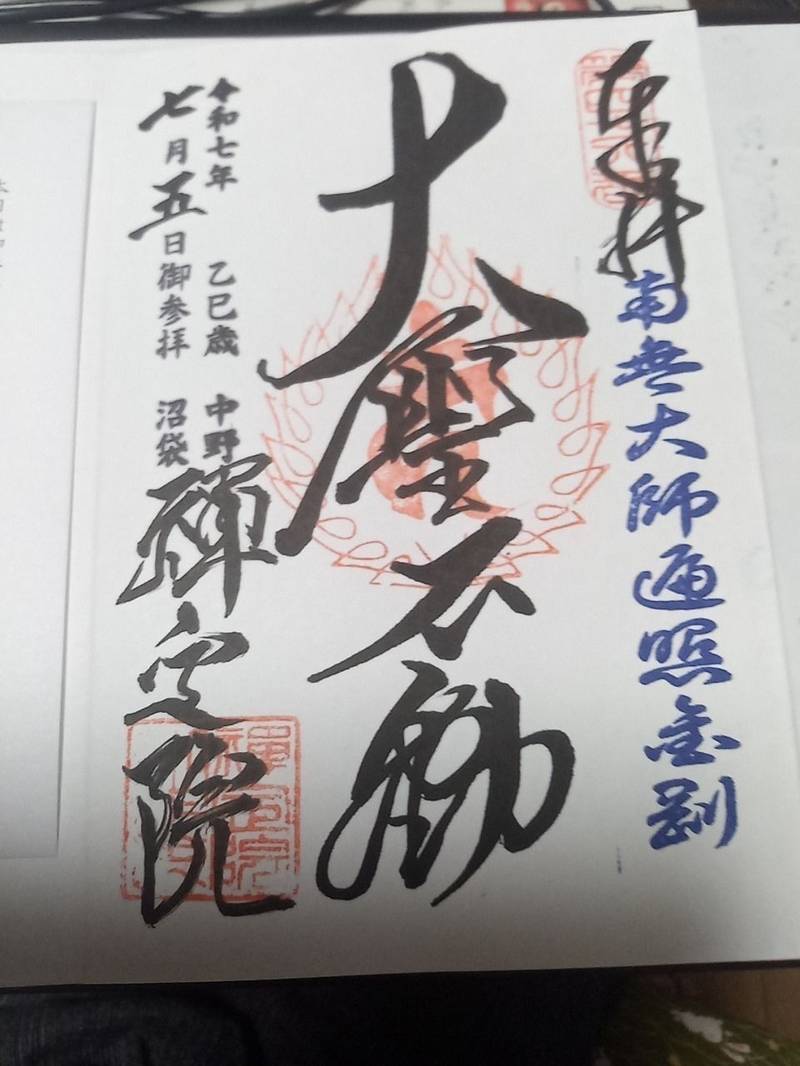 奉拝
南無大師遍照金剛
大聖不動
令和七年 乙巳歳 中野
七月五日御参拝 沼袋
禅定院